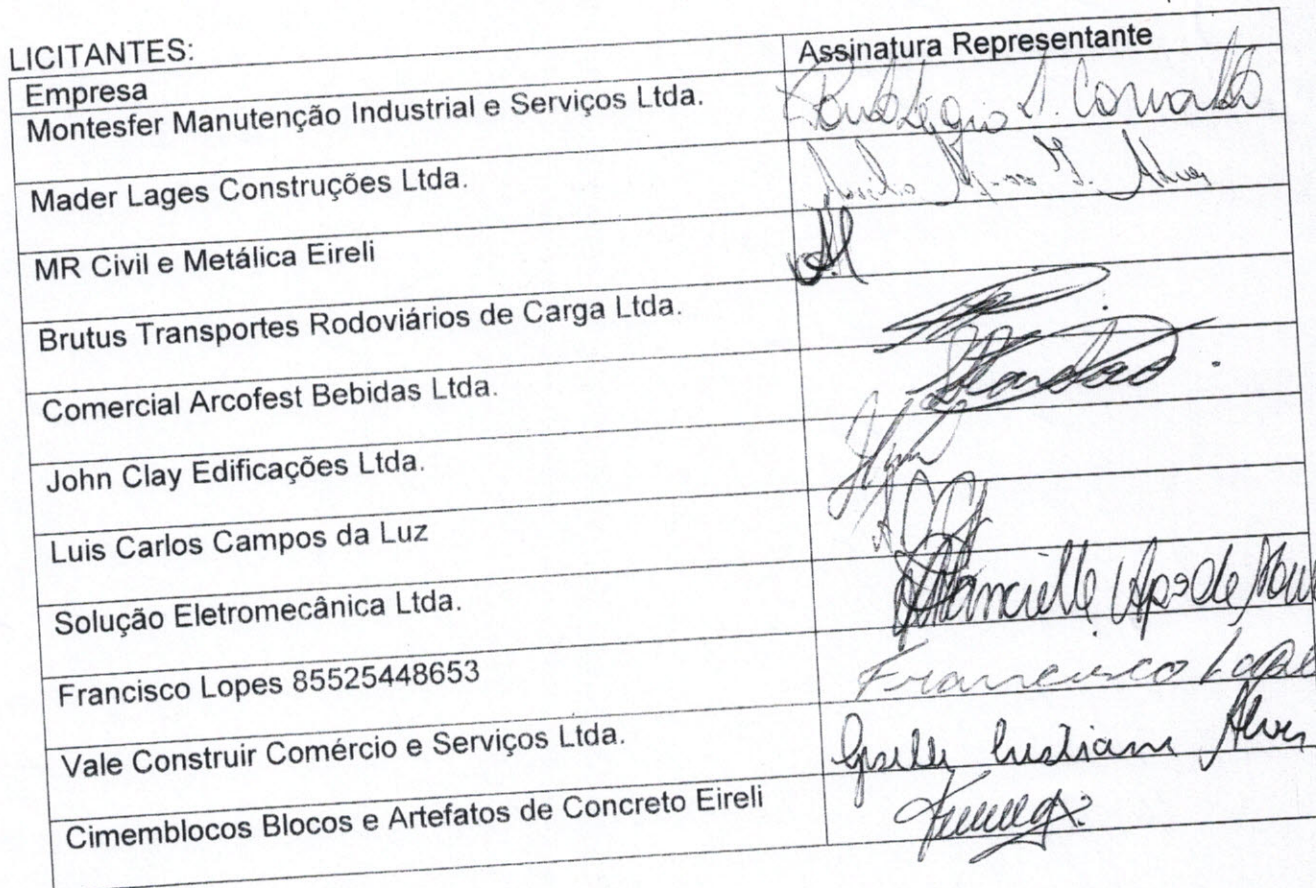 LICITANTES:
Empresa Assinatura Representante
Montesfer Manutenção Industrial e Serviços Ltda.
Mader Lages Construções Ltda. Alves
MR Civil e Metálica Eireli
Brutus Transportes Rodoviários de Carga Ltda.
Comercial Arcofest Bebidas Ltda.
John Clay Edificações Ltda.
Luis Carlos Campos da Luz
Solução Eletromecânica Ltda.
Francisco Lopes 85525448653 Francisco
Vale Construir Comércio e Serviços Ltda. Cristiane Alves
Cimemblocos Blocos e Artefatos de Concreto Eireli